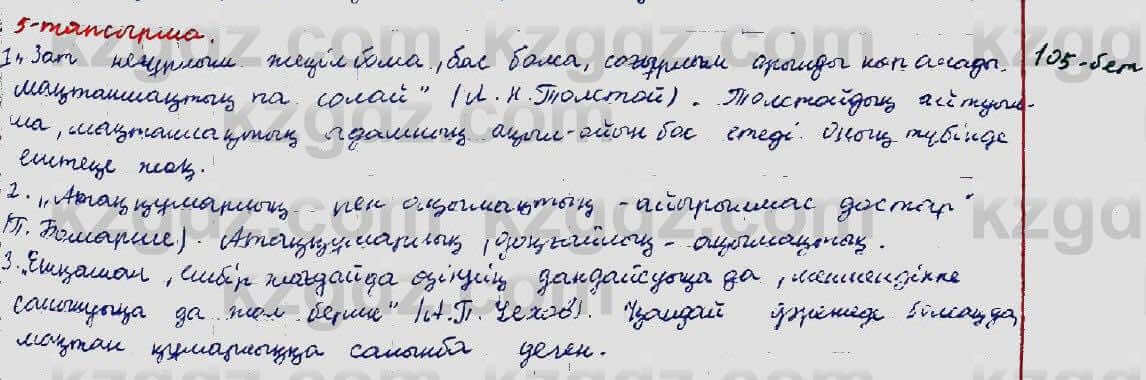 5-тапсырма.
1. „Зат неғұрлым жеңіл болса, бос болса, соғұрлым орынды көп алады. 105-бет
Мақтаншақтық та солай" (Л.Н.Толстой). Толстойдың айтуын-
ша, мақтаншақтық адамның ақыл-ойын бос етеді. Оның түбінде
ештеңе жоқ.
2. „Атаққұмарлық пен ақымақтық - айырылмас достар"
(П. Бомарше). Атаққұмарлық, даңғойлық - ақымақтық.
3. „Ешқашан, ешбір жағдайда өзіңнің даңдайсуыңа да, менмендікке
салынуыңа да жол берме" (А.П.Чехов). Қандай болсаң да,
мақтан құмарлыққа салынба деген.
kzgdz.com